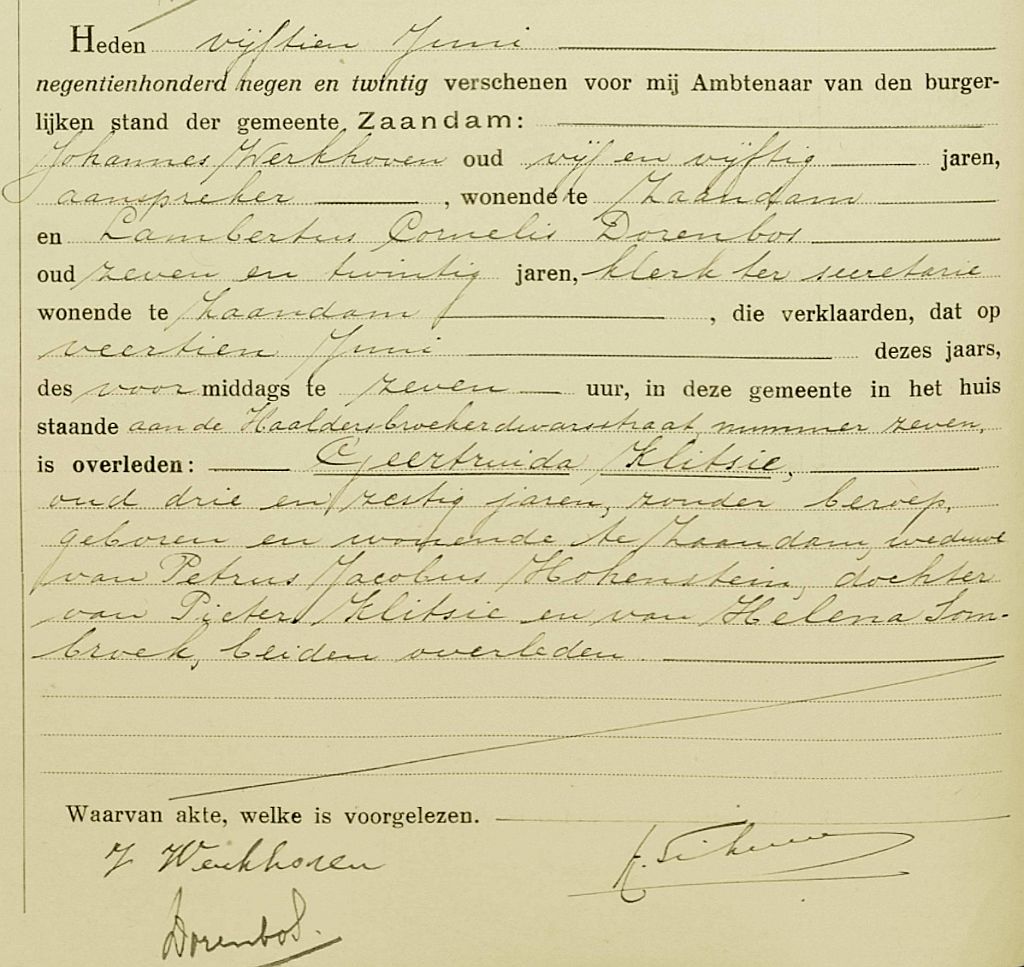 Heden vijftien Juni
negentienhonderd negen en twintig verschenen voor mij Ambtenaar van den burger-
lijken stand der gemeente Zaandam:
Johannes Werkhoven oud vijf en vijftig jaren,
aanspreker, wonende te Zaandam
en Lambertus Cornelis Dorenbos
oud zeven en twintig jaren, klerk ter secretarie
wonende te Zaandam, die verklaarden, dat op
veertien Juni dezes jaars,
des voormiddags te zeven uur, in deze gemeente in het huis
staande aan de Haaldersbroekerdwarsstraat, nummer zeven,
is overleden: Geertruida Klitsie,
oud drie en zestig jaren, zonder beroep,
geboren en wonende te Zaandam, weduwe
van Petrus Jacobus Hohenstein, dochter
van Pieter Klitsie en van Helena Som-
broek, beiden overleden.
Waarvan akte, welke is voorgelezen.
J Werkhoven
Dorenbos.